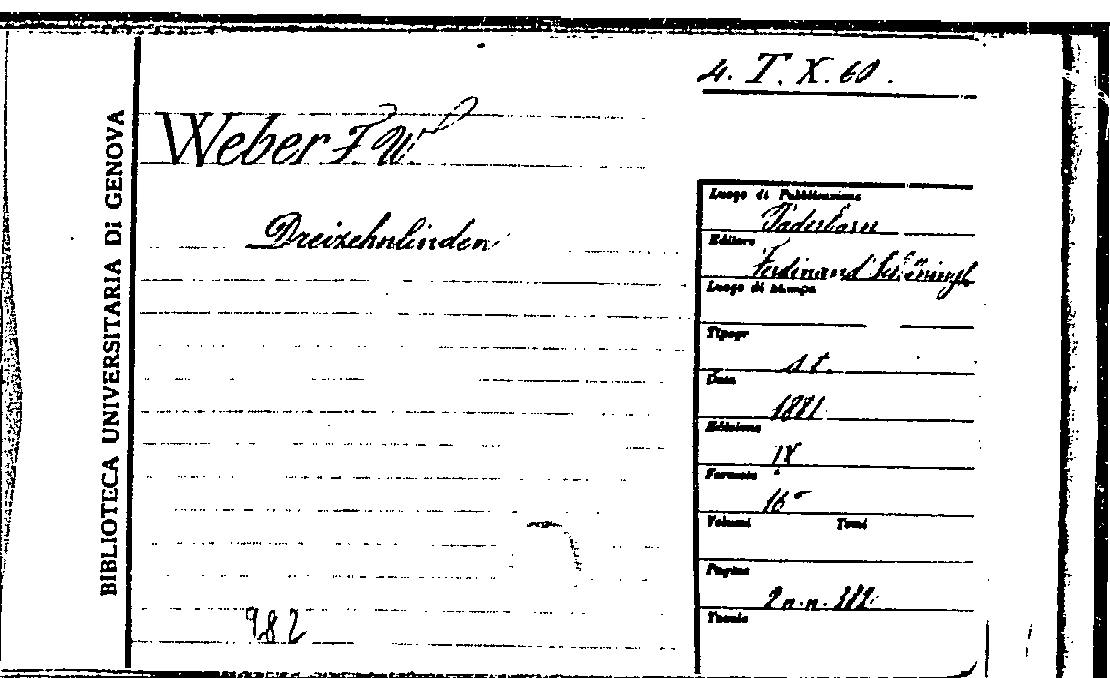 4. T. X. 60.
BIBLIOTECA UNIVERSITARIA Di GENOVA
Weber F W
Dreizehnlinden
Luogo di Pubblicazione
Paderborn
Editore
Ferdinand Schöningh
Luogo di stampa
Tipogr
s t.
Data
1881
Edizione
IX
Formato
16°
Volumi Tomi
Pagine
2 n.n. 382
Tavole
982